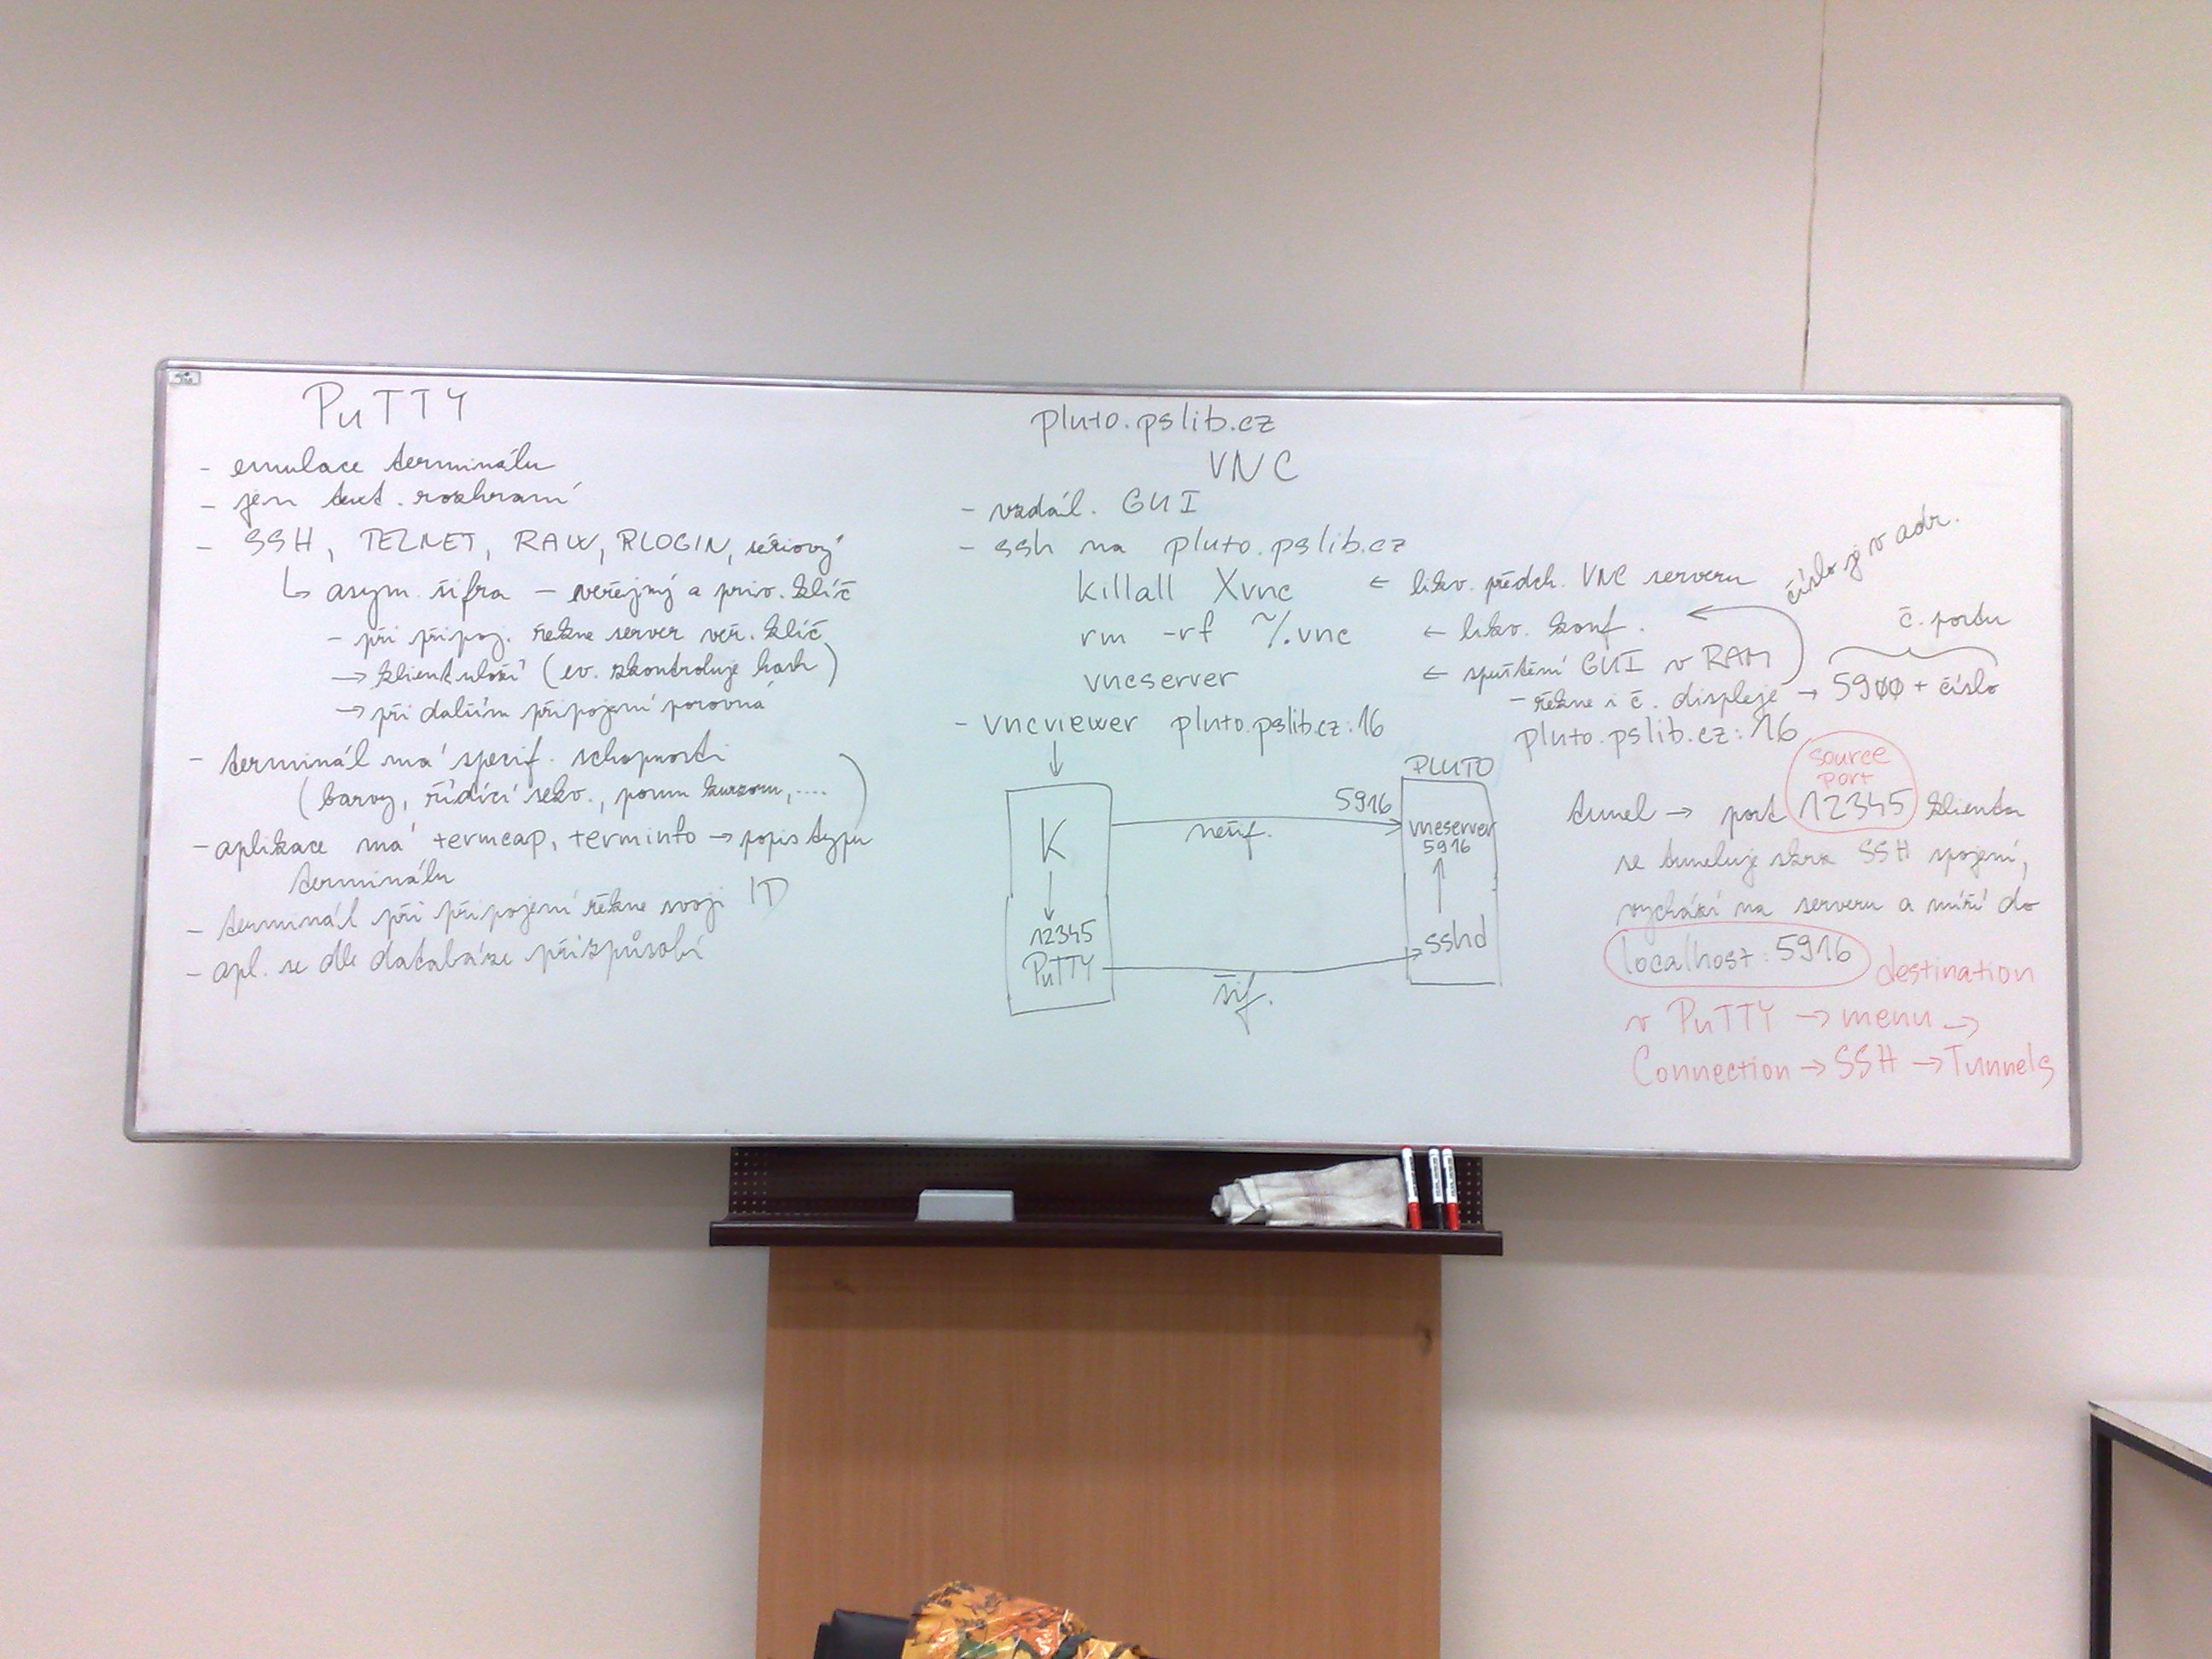 PuTTY
- emulace terminálu
- jen text. rozhraní
- SSH, TELNET, RAW, RLOGIN, sériový
↳ asym. šifra – veřejný a priv. klíč
- při připoj. řekne server veř. klíč
→ klient uloží (ev. zkontroluje hash)
→ při dalším připojení porovná
- terminál má specif. schopnosti
(barvy, řídící sekv., posun kurzoru, ....)
- aplikace má termcap, terminfo → popis typu
terminálu
- terminál při připojení řekne svoji ID
- apl. se dle databáze přizpůsobí
pluto.pslib.cz
VNC
- vzdál. GUI
- ssh na pluto.pslib.cz
killall Xvnc ← likv. předch. VNC serveru
rm -rf ~/.vnc ← likv. konf.
vncserver ← spuštění GUI v RAM
- řekne i č. displeje → 5900 + číslo
č. portu
číslo je v adr.
pluto.pslib.cz:16
- vncviewer pluto.pslib.cz:16
K
12345
PuTTY
nešif.
5916
šif.
PLUTO
vncserver
5916
sshd
source
port
tunel → port 12345 klienta
se tuneluje skrz SSH spojení,
vychází na serveru a míří do
localhost:5916 destination
v PuTTY → menu →
Connection → SSH → Tunnels